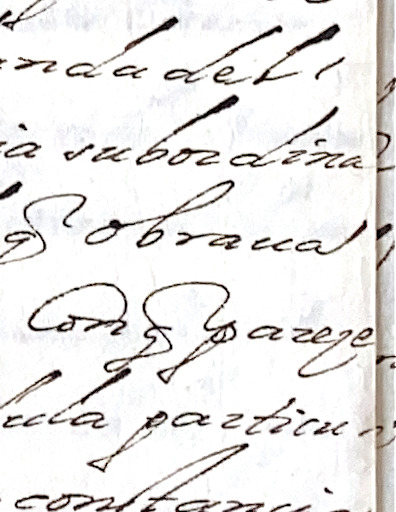 anda del
ia subordina
q obraua
Con q pareze
lula particu
constanci